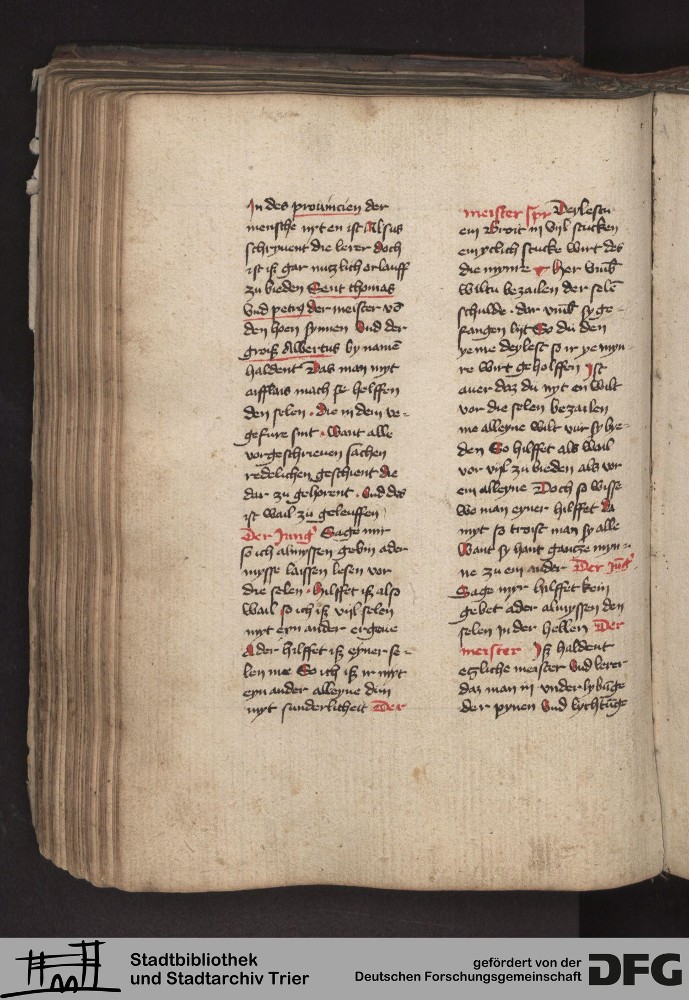 In des prouincien der
mensche nyt en ist Alsus
schryuent die lerer doch
ist iß gar nutzlich orlauff
zu bieden Sent thomas
Vnd petrꝰ der meister vō
den hoen synnen Vnd der
groiß Albertus by namē
haldent Das man myt
aifflais mach sie helffen
den selen . Die in dem ve-
gefure sint . Want alle
vorgeschrieuen sachen
redelichen geschient die
dar zu gehorent . Vnd des
ist wail zu geleuffen
Der Jungᵉ Sage mir
so ich almyssen gebin ader
mysse laissen lesen vor
die selen . hilffet iß also
wail so ich iß vyl selen
myt eyn ander ergeue
Ader hilffet iß eyner se-
len me So ich iß ir myt
eyn ander alleyne dun
myt sunderlicheit Der
meister spr Deylestu
ein Broit in vyl stucken
eyn yclich stucke wirt des
die mynre Her vmb
wiltu bezailen der selē
schulde . dar vmb sy ge-
fangen lijt So du den
yeme deylest so ir ye myn-
re wirt geholffen Ist
auer daz du nyt en wilt
vor die selen bezailen
me alleyne wilt vur sy be-
den So hilffet als wail
vor vyl zu bieden als vor
ein alleyne Doch so wisse
we man eyner hilffet da
myt so troist man sy alle
Want sy hant gantze myn-
ne zu ein ander Der jūgᵉ
Sage myr hilffet kein
gebet ader almyssen den
selen in der hellen Der
meister Iß haldent
etzliche meister Vnd lerer
daz man in vnderlybūge
der pynen Vnd lychtūge
Stadtbibliothek
und Stadtarchiv Trier
gefördert von der
Deutschen Forschungsgemeinschaft
DFG